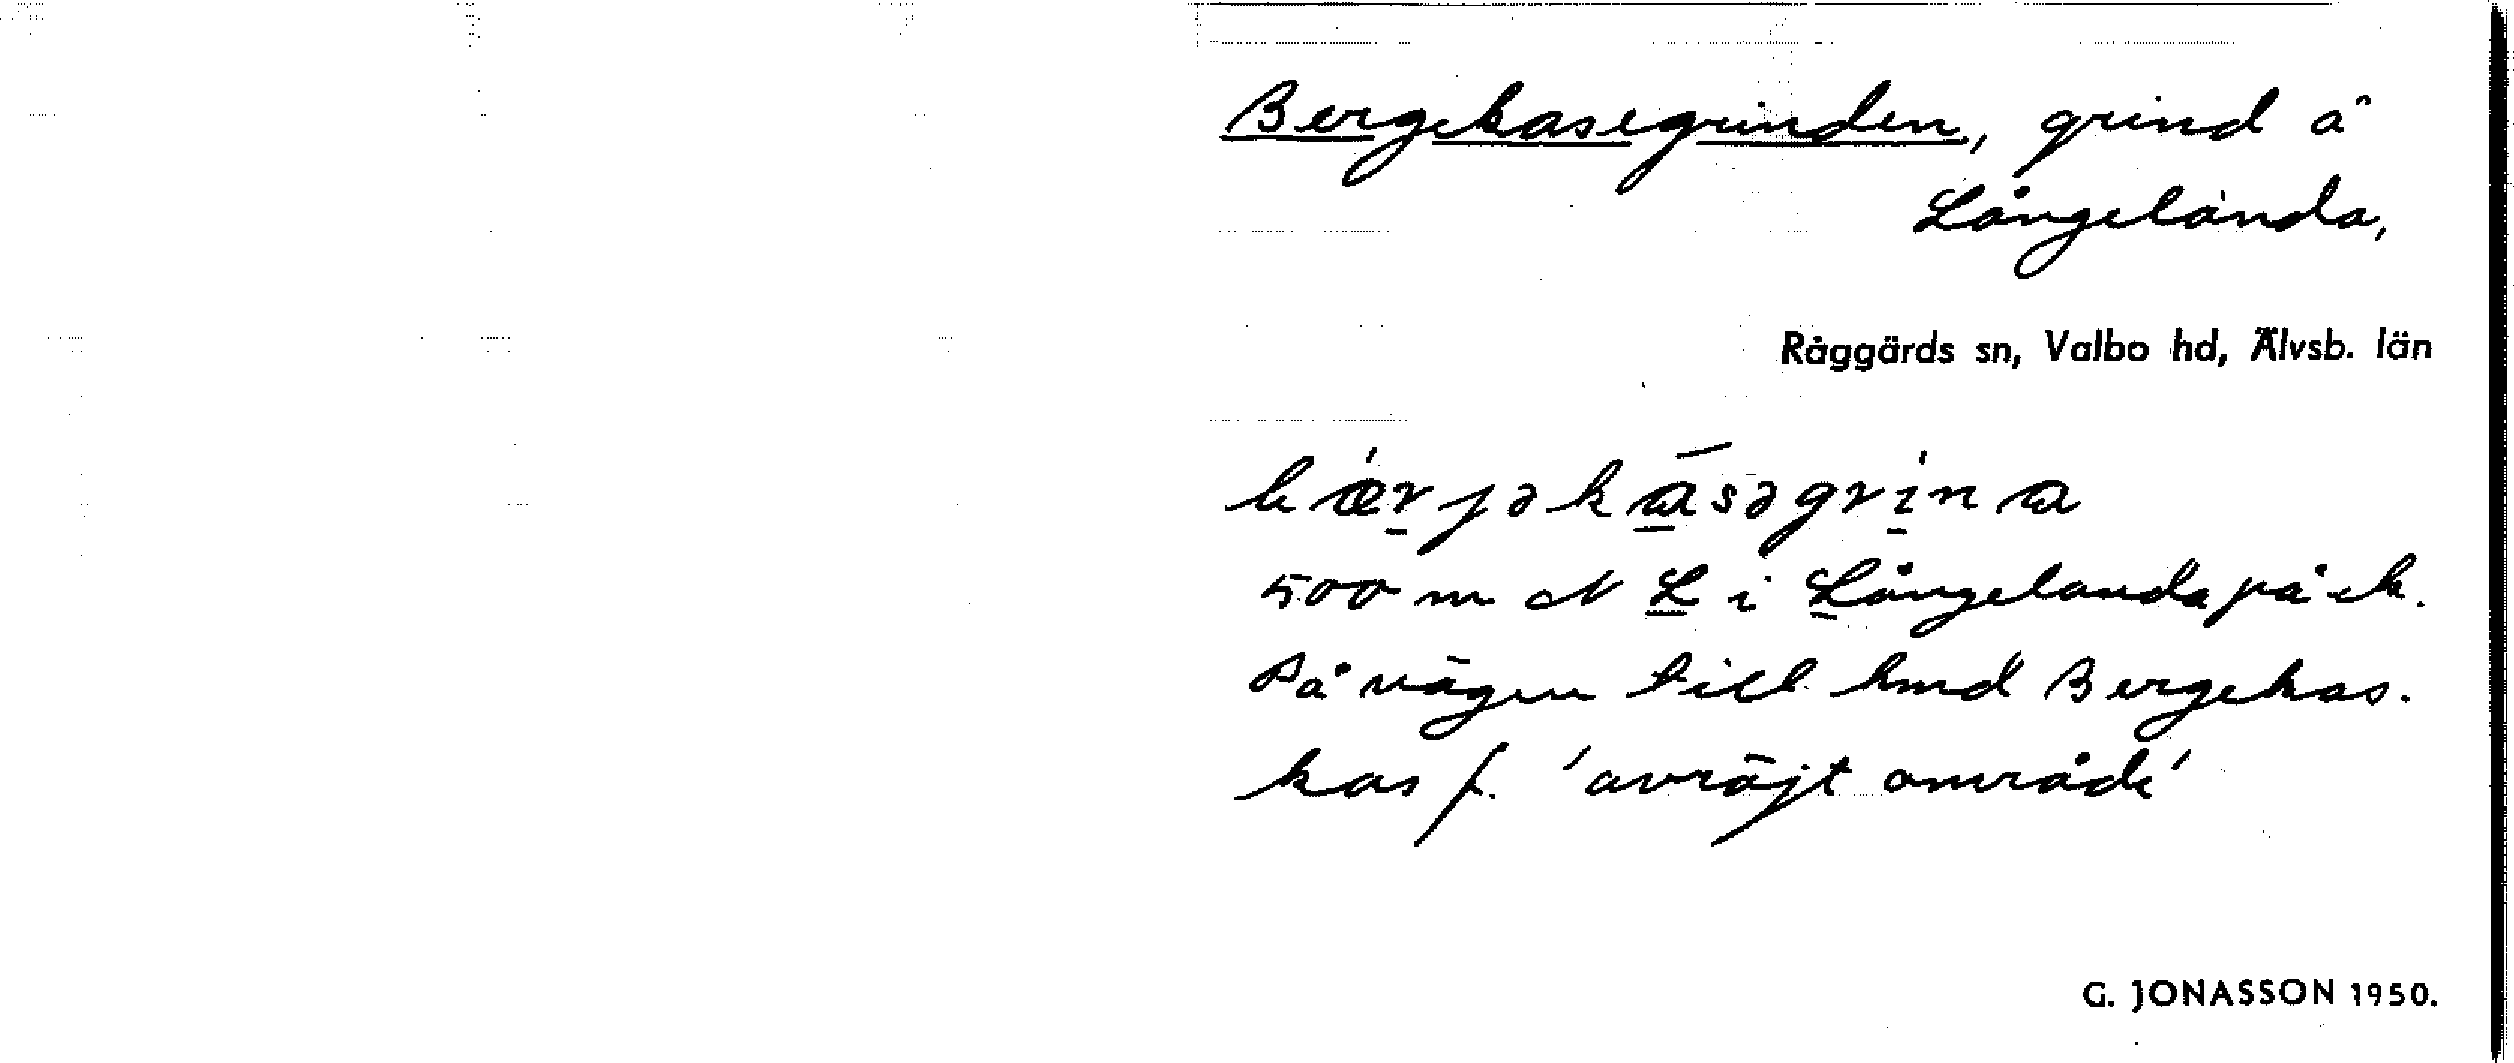 Bergekasegrinden, grind å
Långelanda,
Råggärds sn, Valbo hd, Älvsb. län
bǽrjəkásəgrína
500 m N L i Långelanda på ek.
På vägen till hmd Bergekas.
kas f. 'avröjt område'
G. JONASSON 1950.